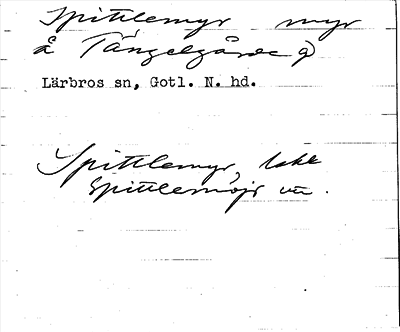 Spittlemyr myr
å Tängelgårde
Lärbros sn, Gotl. N. hd.
Spittlemyr,
spittlemöjr